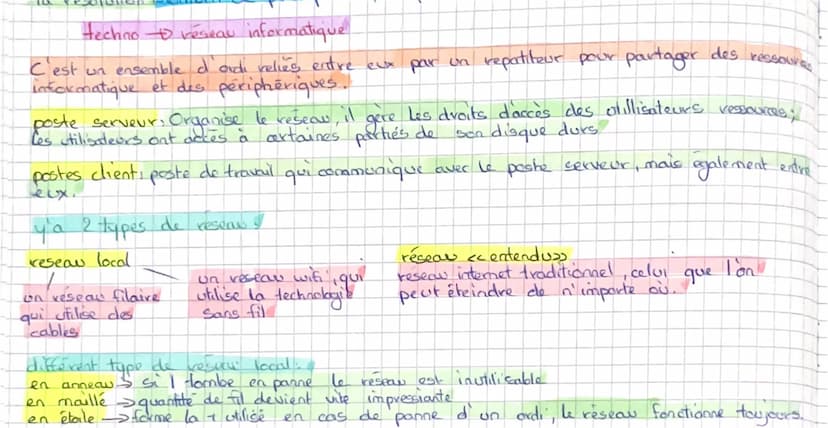 la résolution
techno → réseau informatique
C'est un ensemble d'ordi reliés entre eux par un repatiteur pour partager des ressources
informatique et des périphériques.
poste serveur: Organise le réseau, il gère les droits d'accès des utillisateurs ressources;
les utilisateurs ont accès à certaines partiés de son disque durs
postes client: poste de travail qui communique avec le poste serveur, mais également entre
eux.
y'a 2 types de réseau
reseau local
réseau <<entendu>>
un réseau filaire
qui utilise des
cables
un reseau wifi, qui
utilise la technologie
sans fil
reseau internet traditionnel, celui que l'on
peut éteindre de n'importe où.
différent type de reseau local:
en anneau → si 1 tombe en panne le réseau est inutilisable
en maillé → quantité de fil devient vite impressiante
en étoile → forme la + utilisé en cas de panne d'un ordi, le réseau fonctionne toujours.